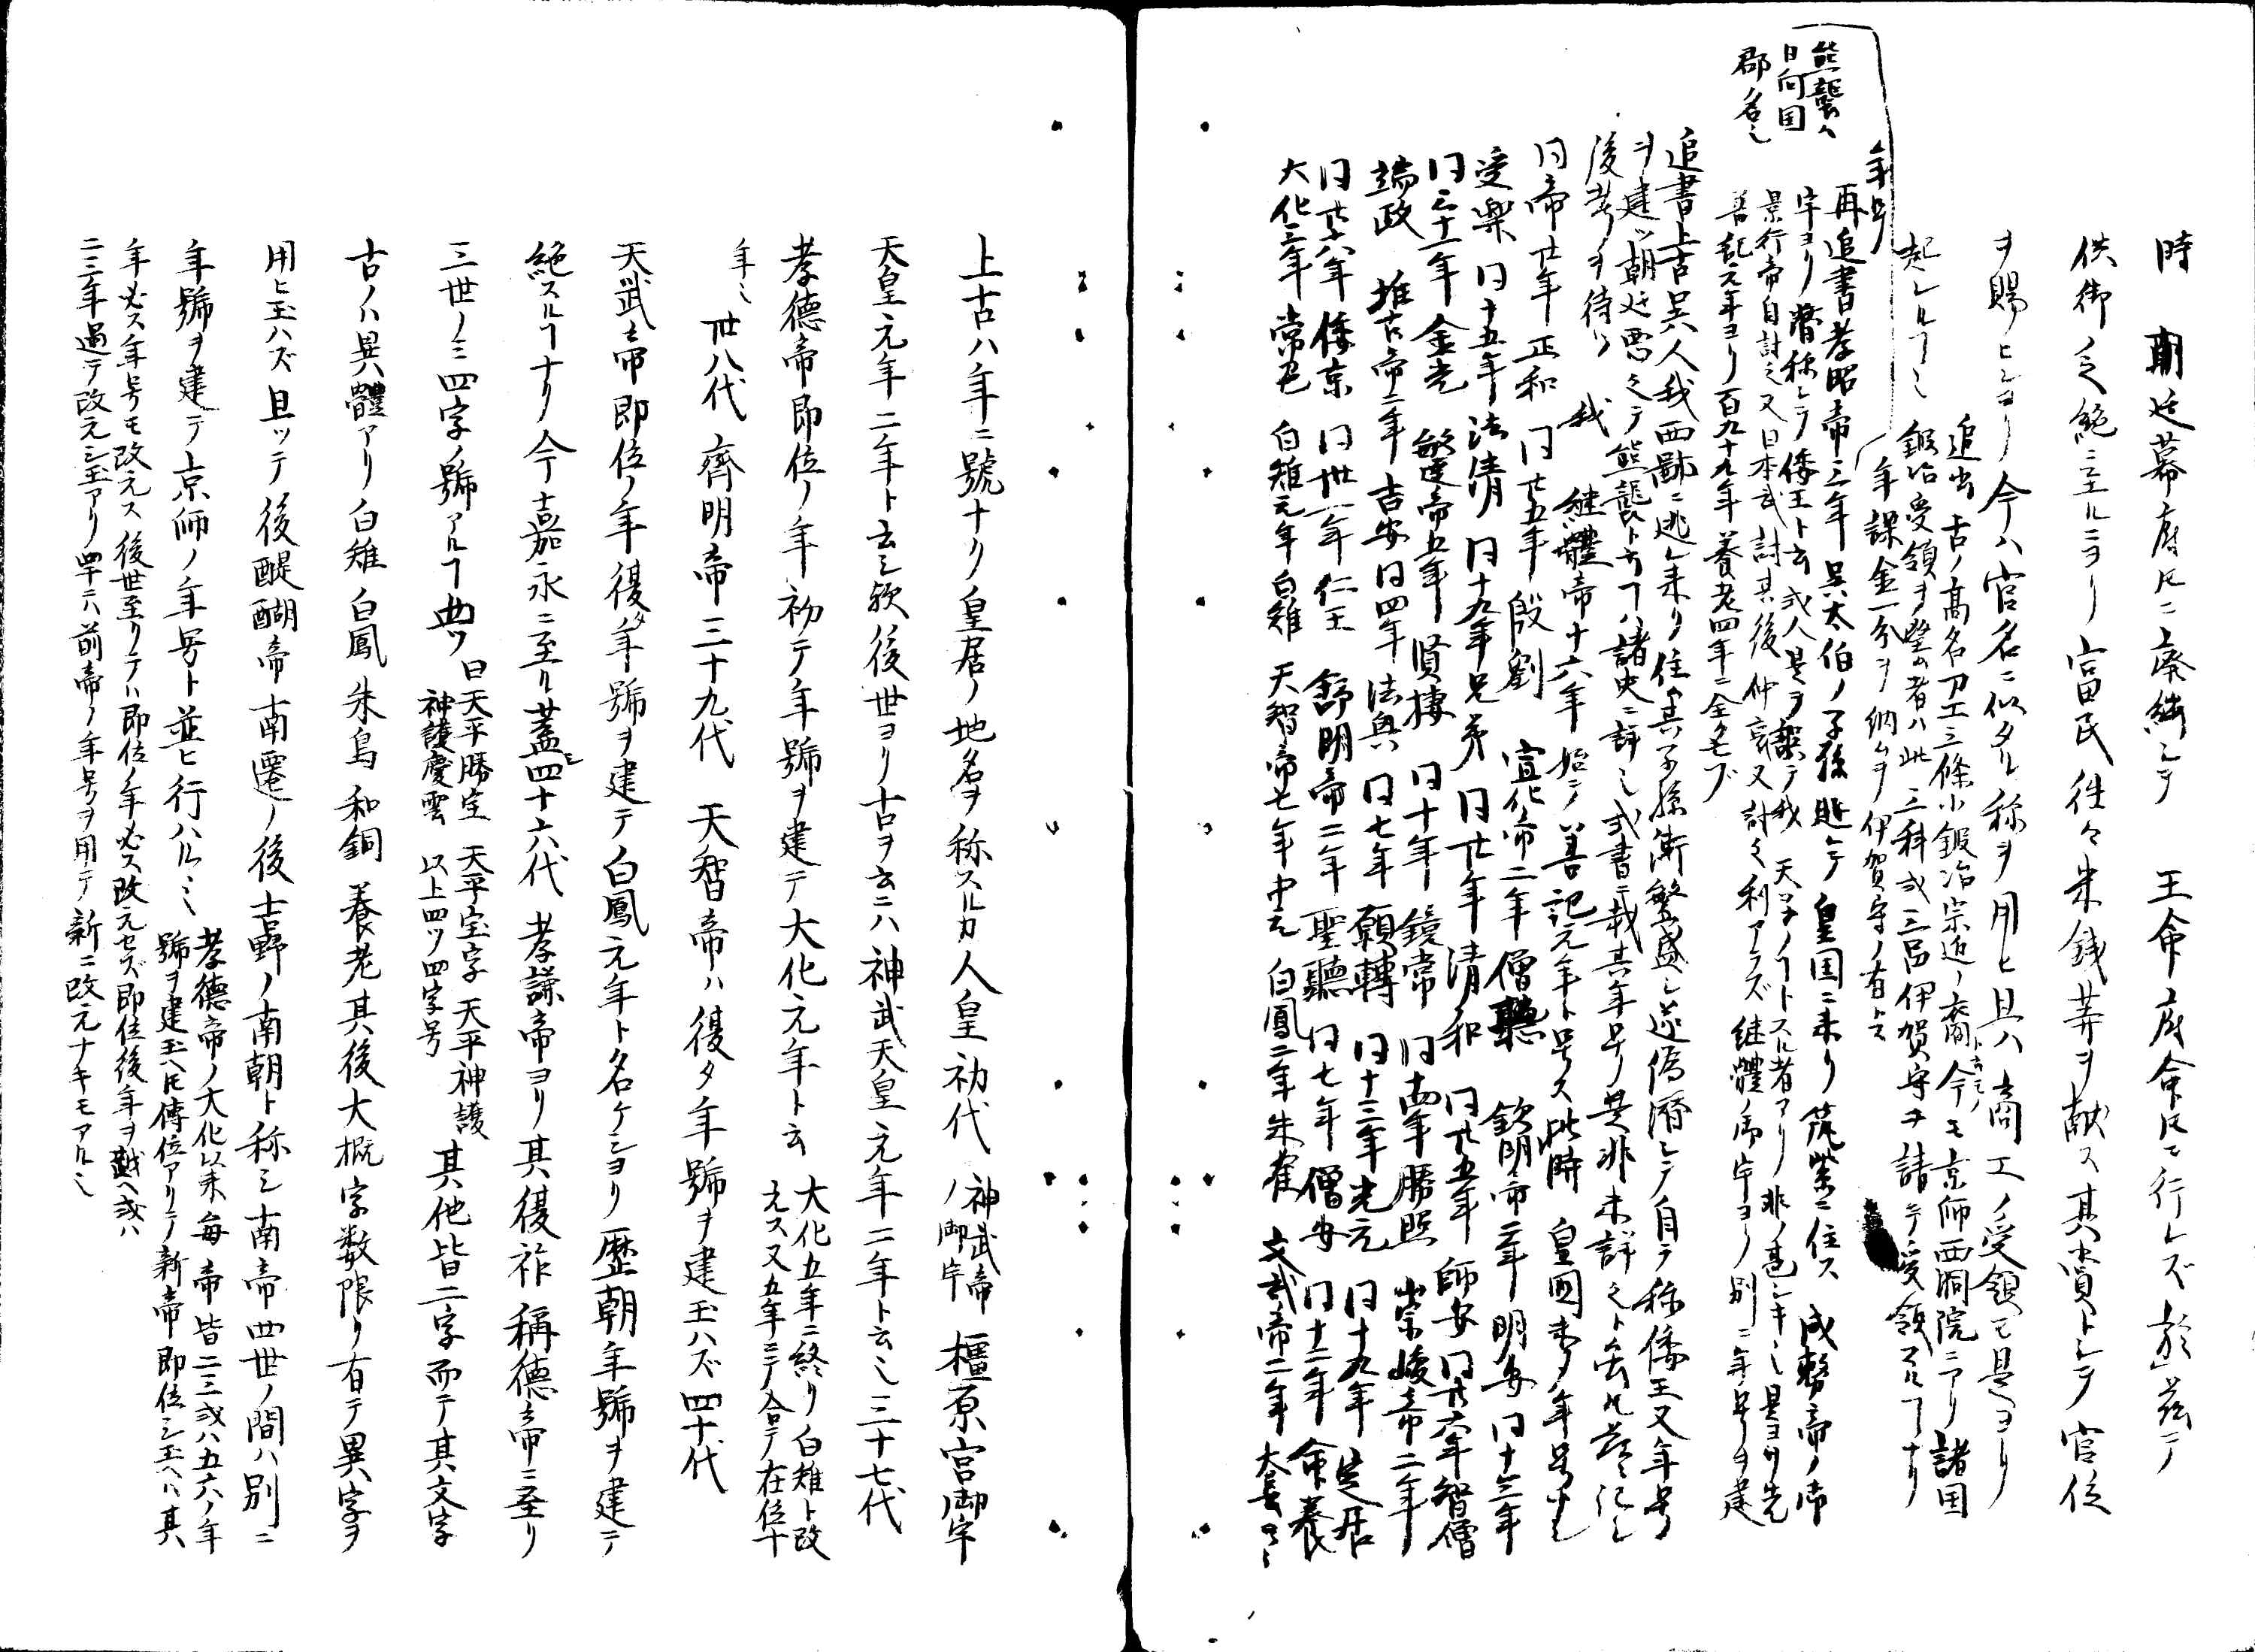 時 朝廷幕府氏ニ廃絶シテ 王命府命氏モ行レズ於茲テ
供御乏絶ニ至ルニヨリ富民往々米銭等ヲ献ス其賞トシテ官位
ヲ賜ヒシヨリ今ハ官名ニ似タル称ヲ用ヒ且ハ商工ノ受領モ是ヨリ
起レルヿミ
追書 古ノ高名刀工三條小鍛冶宗近ノ裔ト云モノ今モ京師西洞院ニアリ諸国
鍛冶受領ヲ望ム者ハ此三科或三品伊賀守ヲ請テ受領スルヿナリ
年課金一分ヲ納ムヲ伊賀守ノ有トス
年号
熊襲ハ
日向国
郡名ミ
再追書孝昭帝三年呉太伯ノ子孫逃レテ 皇国ニ来リ筑紫ニ住ス 成務帝ノ御
宇ヨリ僭称シテ倭王ト云或人是ヲ誤テ我 天子ノヿトスル者アリ非ノ甚シキミ是ヨリ先
景行帝自討之又日本武討其後仲哀又討之利アラズ継體ノ御宇ヨリ別ニ年号ヲ建
善記元年ヨリ百九十九年養老四年ニ全クモブ
追書上古呉人我西鄙ニ逃レ来リ住ス其子孫衍繁盛シ遂僭シテ自テ称倭王又年号
ヲ建ツ朝廷悪之テ熊襲ト云フヿハ諸史ニ詳ミ或書ニ載其年号リ是非未詳之ト云氏茲ニ記シ
後考ヲ待ツ 我 継體帝十六年始テ善記元年ト号ス此時 皇国未タ年号ナシ
同帝廿年 正和 同廿五年 殷劉 宣化帝二年 僧聴 欽明帝二年 明安 同十三年
受楽 同十五年 法清 同十九年兄弟 同廿年 清和 同廿五年 師安 同廿六年智僧
同三十一年 金光 敏達帝五年 賢棲 同十年 鏡常 同十四年勝照 崇峻帝二年
端政 推古帝二年 吉安 同四年 法興 同七年 願轉 同十三年光元 同十九年 定居
同廿八年 倭京 同卅一年 仁王 舒明帝二年 聖聴 同七年 僧安 同十二年 命養
大化三年 常色 白雉元年 白雉 天智帝七年 中元 白鳳二年 朱雀 文武帝二年 大長
上古ハ年ニ號ナク皇居ノ地名ヲ称スルカ人皇初代神武帝ノ御宇橿原宮御宇
天皇元年二年ト云シ歟後世ヨリ古ヲ云ニハ神武天皇元年二年ト云ミ三十七代
孝德帝即位ノ年初テ年號ヲ建テ大化元年ト云大化五年ニ終リ白雉ト改
元ス又五年ニテ合テ在位十
年ミ 卅八代齊明帝三十九代 天智帝ハ復タ年號ヲ建玉ハズ四十代
天武帝即位ノ年復タ年號ヲ建テ白鳳元年ト名ケシヨリ歴朝年號ヲ建テ
絶スルヿナリ今嘉永ニ至ル蓋シ四十六代孝謙帝ヨリ其復祚稱德帝ニ至リ
三世ノミ四字ノ號アルヿ四ツ曰天平勝宝 天平宝字 天平神護
神護慶雲 以上四ツ四字号
其他皆二字而テ其文字
古ノハ異體アリ白雉白鳳朱鳥和銅養老其後大概字数限リ有テ異字ヲ
用ヒ玉ハズ且ツテ後醍醐帝南遷ノ後吉野ノ南朝ト称シ南帝四世ノ間ハ別ニ
年號ヲ建テ京師ノ年号ト並ヒ行ハルヽミ孝德帝ノ大化以来毎帝皆二三或ハ五六ノ年
號ヲ建玉ヘ氏傳位アリテ新帝即位シ玉ヘハ其
年必ス年号モ改元ス後世至リテハ即位ノ年必ス改元セズ即位後年ヲ越ヘ或ハ
二三年過テ改元シ玉アリ四十ニハ前帝ノ年号ヲ用テ新ニ改元ナキモアルミ